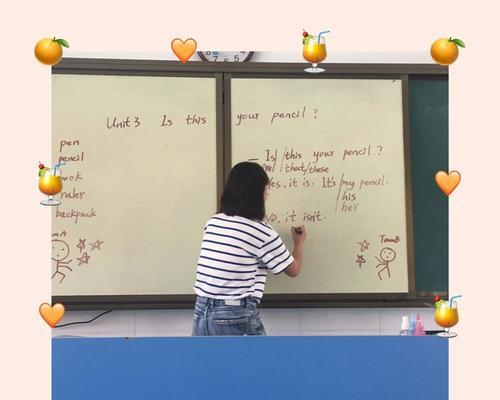 Unit 3 Is this your pencil ?
pen
pencil
book
ruler
backpack
Is this your pencil ?
that/these
Yes, it is. It's my pencil.
his
her
No, it isn't.
A
TeamB